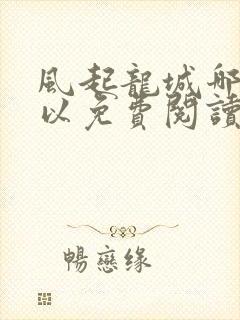 風起龍城哪
以免費閱讀
暢戀缘